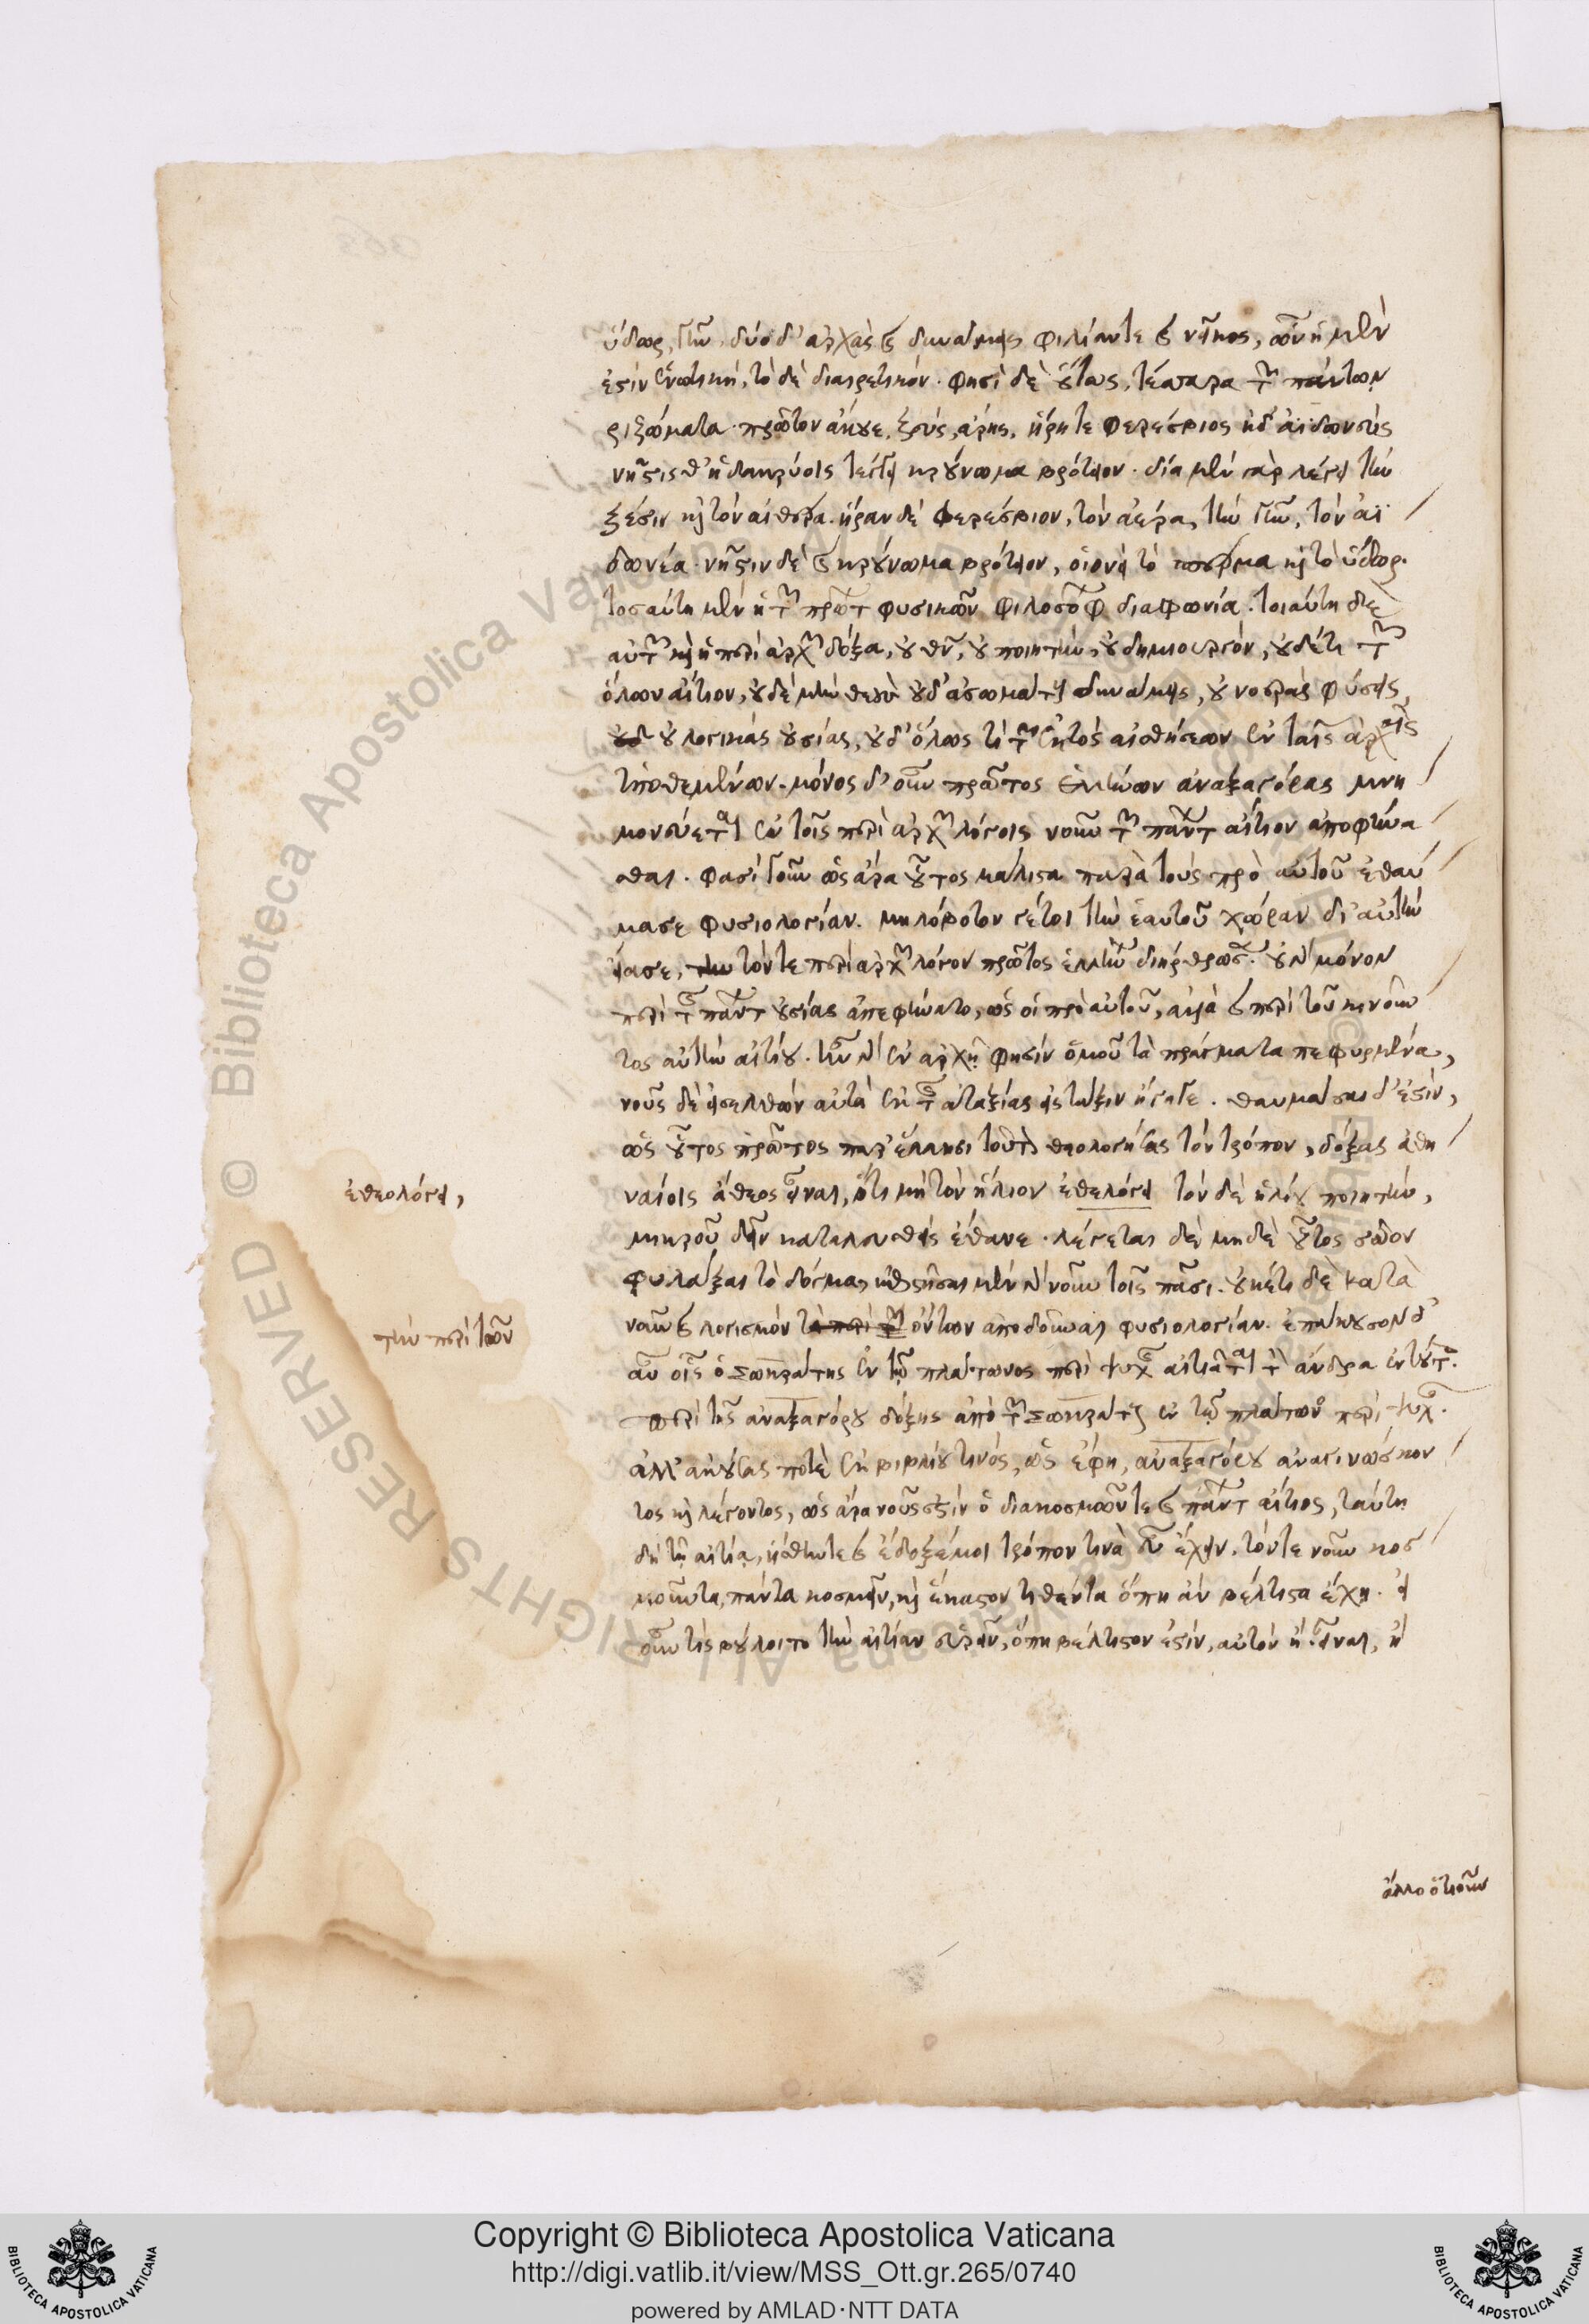 ὕδωρ, γῆν. δύο δ' ἀρχὰς καὶ δυνάμεις φιλίαν τε καὶ νεῖκος, ὧν ἡ μὲν
ἐστὶν ἑνωτικὴ, τὸ δὲ διαιρετικόν. φησὶ δὲ οὕτως, τέσσαρα τῶν πάντων
ῥιζώματα πρῶτον ἄκουε, ζεύς, ἄρης, ἥρη τε φερέσβιος ἠδ' ἀϊδωνεύς
νῆστις θ' ἣ δακρύοις τέγγει κρούνωμα βρότειον. δία μὲν γὰρ λέγει τὴν
ζέσιν καὶ τὸν αἰθέρα. ἥραν δὲ φερέσβιον, τὸν ἀέρα, τὴν γῆν, τὸν ἀϊ
δωνέα. νῆστιν δὲ καὶ κρούνωμα βρότειον, οἱονεὶ τὸ σπέρμα καὶ τὸ ὕδωρ.
τοσαύτη μὲν ἡ τῶν πρώτων φυσικῶν φιλοσόφων διαφωνία. τοιαύτη δὲ
αὐτῶν καὶ ἡ περὶ ἀρχῶν δόξα, οὐ θεὸν, οὐ ποιητὴν, οὐ δημιουργόν, οὐδέ τι τῶν
ὅλων αἴτιον, οὐδὲ μὴν θεοὺς οὐδ' ἀσωμάτους δυνάμεις, οὐ νοερὰς φύσεις,
οὐ λογικὰς οὐσίας, οὐδ' ὅλως τι τῶν ἐκτὸς αἰσθήσεων ἐν ταῖς ἀρχαῖς
ὑποθεμένων. μόνος δ' οὖν πρῶτος ἑλλήνων ἀναξαγόρας μνη
μονεύεται ἐν τοῖς περὶ ἀρχῶν λόγοις νοῦν τῶν πάντων αἴτιον ἀποφήνα
σθαι. φασὶ γοῦν ὡς ἄρα οὗτος μάλιστα παρὰ τοὺς πρὸ αὐτοῦ ἐθαύ
μασε φυσιολογίαν. μηλόβοτον γέ τοι τὴν ἑαυτοῦ χώραν δι' αὐτὴν
εἴασε, τόν τε περὶ ἀρχῶν λόγον πρῶτος ἑλλήνων διήρθρωσεν. οὐ γὰρ μόνον
περὶ τῆς πάντων οὐσίας ἀπεφήνατο, ὡς οἱ πρὸ αὐτοῦ, ἀλλὰ καὶ περὶ τοῦ κινοῦν
τος αὐτὴν αἰτίου. ἦν γὰρ ἐν ἀρχῇ φησὶν ὁμοῦ τὰ πράγματα πεφυρμένα,
νοῦς δὲ εἰσελθὼν αὐτὰ ἐκ τῆς ἀταξίας εἰς τάξιν ἤγαγε. θαυμάσαι δ' ἐστίν,
ὡς οὗτος πρῶτος παρ' ἕλλησι τοῦτον θεολογήσας τὸν τρόπον, δόξας ἀθη
ναίοις ἄθεος εἶναι, ὅτι μὴ τὸν ἥλιον ἐθελόγει τὸν δὲ ἡλίου ποιητὴν,
ἐθεολόγει,
μικροῦ δεῖν καταλευσθεὶς ἔθανε. λέγεται δὲ μηδὲ οὗτος σῶον
φυλάξαι τὸ δόγμα, ἐπιστῆσαι μὲν γὰρ νοῦν τοῖς πᾶσι. οὐκέτι δὲ κατὰ
νοῦν καὶ λογισμὸν τὰ περὶ τῶν ὄντων ἀποδοῦναι φυσιολογίαν. ἐπάκουσον δ'
τὴν περὶ τῶν
οὖν οἷς ὁ σωκράτης ἐν τῷ πλάτωνος περὶ ψυχῆς αἰτιᾶται τὸν ἄνδρα ἐν τούτοις.
περὶ τῆς ἀναξαγόρου δόξης ἀπὸ τῶν σωκράτους ἐν τῷ πλάτωνος περὶ ψυχῆς.
ἀλλ' ἀκούσας ποτὲ ἐκ βιβλίου τινός, ὡς ἔφη, ἀναξαγόρου ἀναγινώσκον
τος καὶ λέγοντος, ὡς ἄρα νοῦς ἐστὶν ὁ διακοσμῶν τε καὶ πάντων αἴτιος, ταύτῃ
δὴ τῇ αἰτίᾳ, ἥσθην τε καὶ ἔδοξέ μοι τρόπον τινὰ εὖ ἔχειν. τόν τε νοῦν κοσ
μοῦντα, πάντα κοσμεῖν, καὶ ἕκαστον τιθέντα ὅπη ἂν βέλτιστα ἔχῃ. εἰ
οὖν τις βούλοιτο τὴν αἰτίαν εὑρεῖν, ὅπη βέλτιστον ἐστίν, αὐτὸν ἢ εἶναι, ἢ
ἄλλο ὁτιοῦν
© Biblioteca Apostolica Vaticana ALL RIGHTS RESERVED
Copyright © Biblioteca Apostolica Vaticana
http://digi.vatlib.it/view/MSS_Ott.gr.265/0740
powered by AMLAD·NTT DATA
BIBLIOTECA APOSTOLICA VATICANA
BIBLIOTECA APOSTOLICA VATICANA